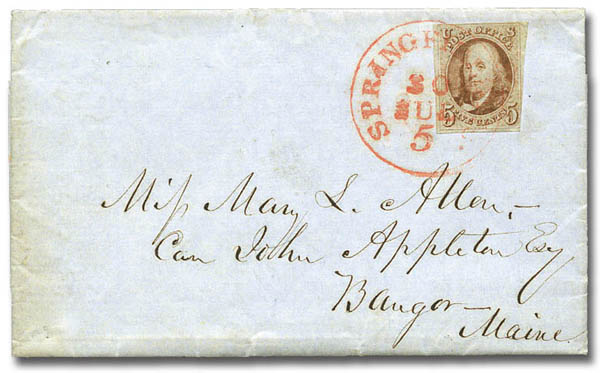 SPRINGF
30
5
U S
POST OFFICE
5 FIVE CENTS 5
Miss Mary L. Allen,
Care John Appleton Esq
Bangor
Maine